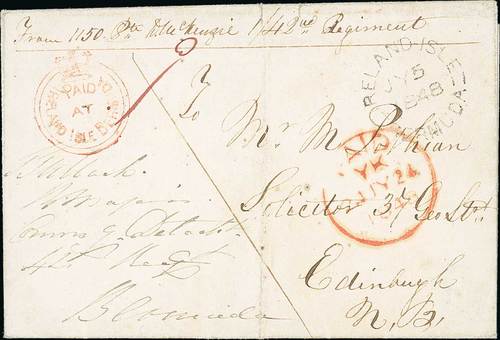 From 1150 Pte D. McKenzie 1/42nd Regiment
PAID
AT
IRELAND ISLE BERMUDA
IRELAND-ISLE
JY 5
1848
BERMUDA
To
Mr M. Pothian
Solicitor 37 Geo St.
Edinburgh
N.B.
PAID
YK
JY 24
Major
Comg Detacht
42d Regt
Bermuda